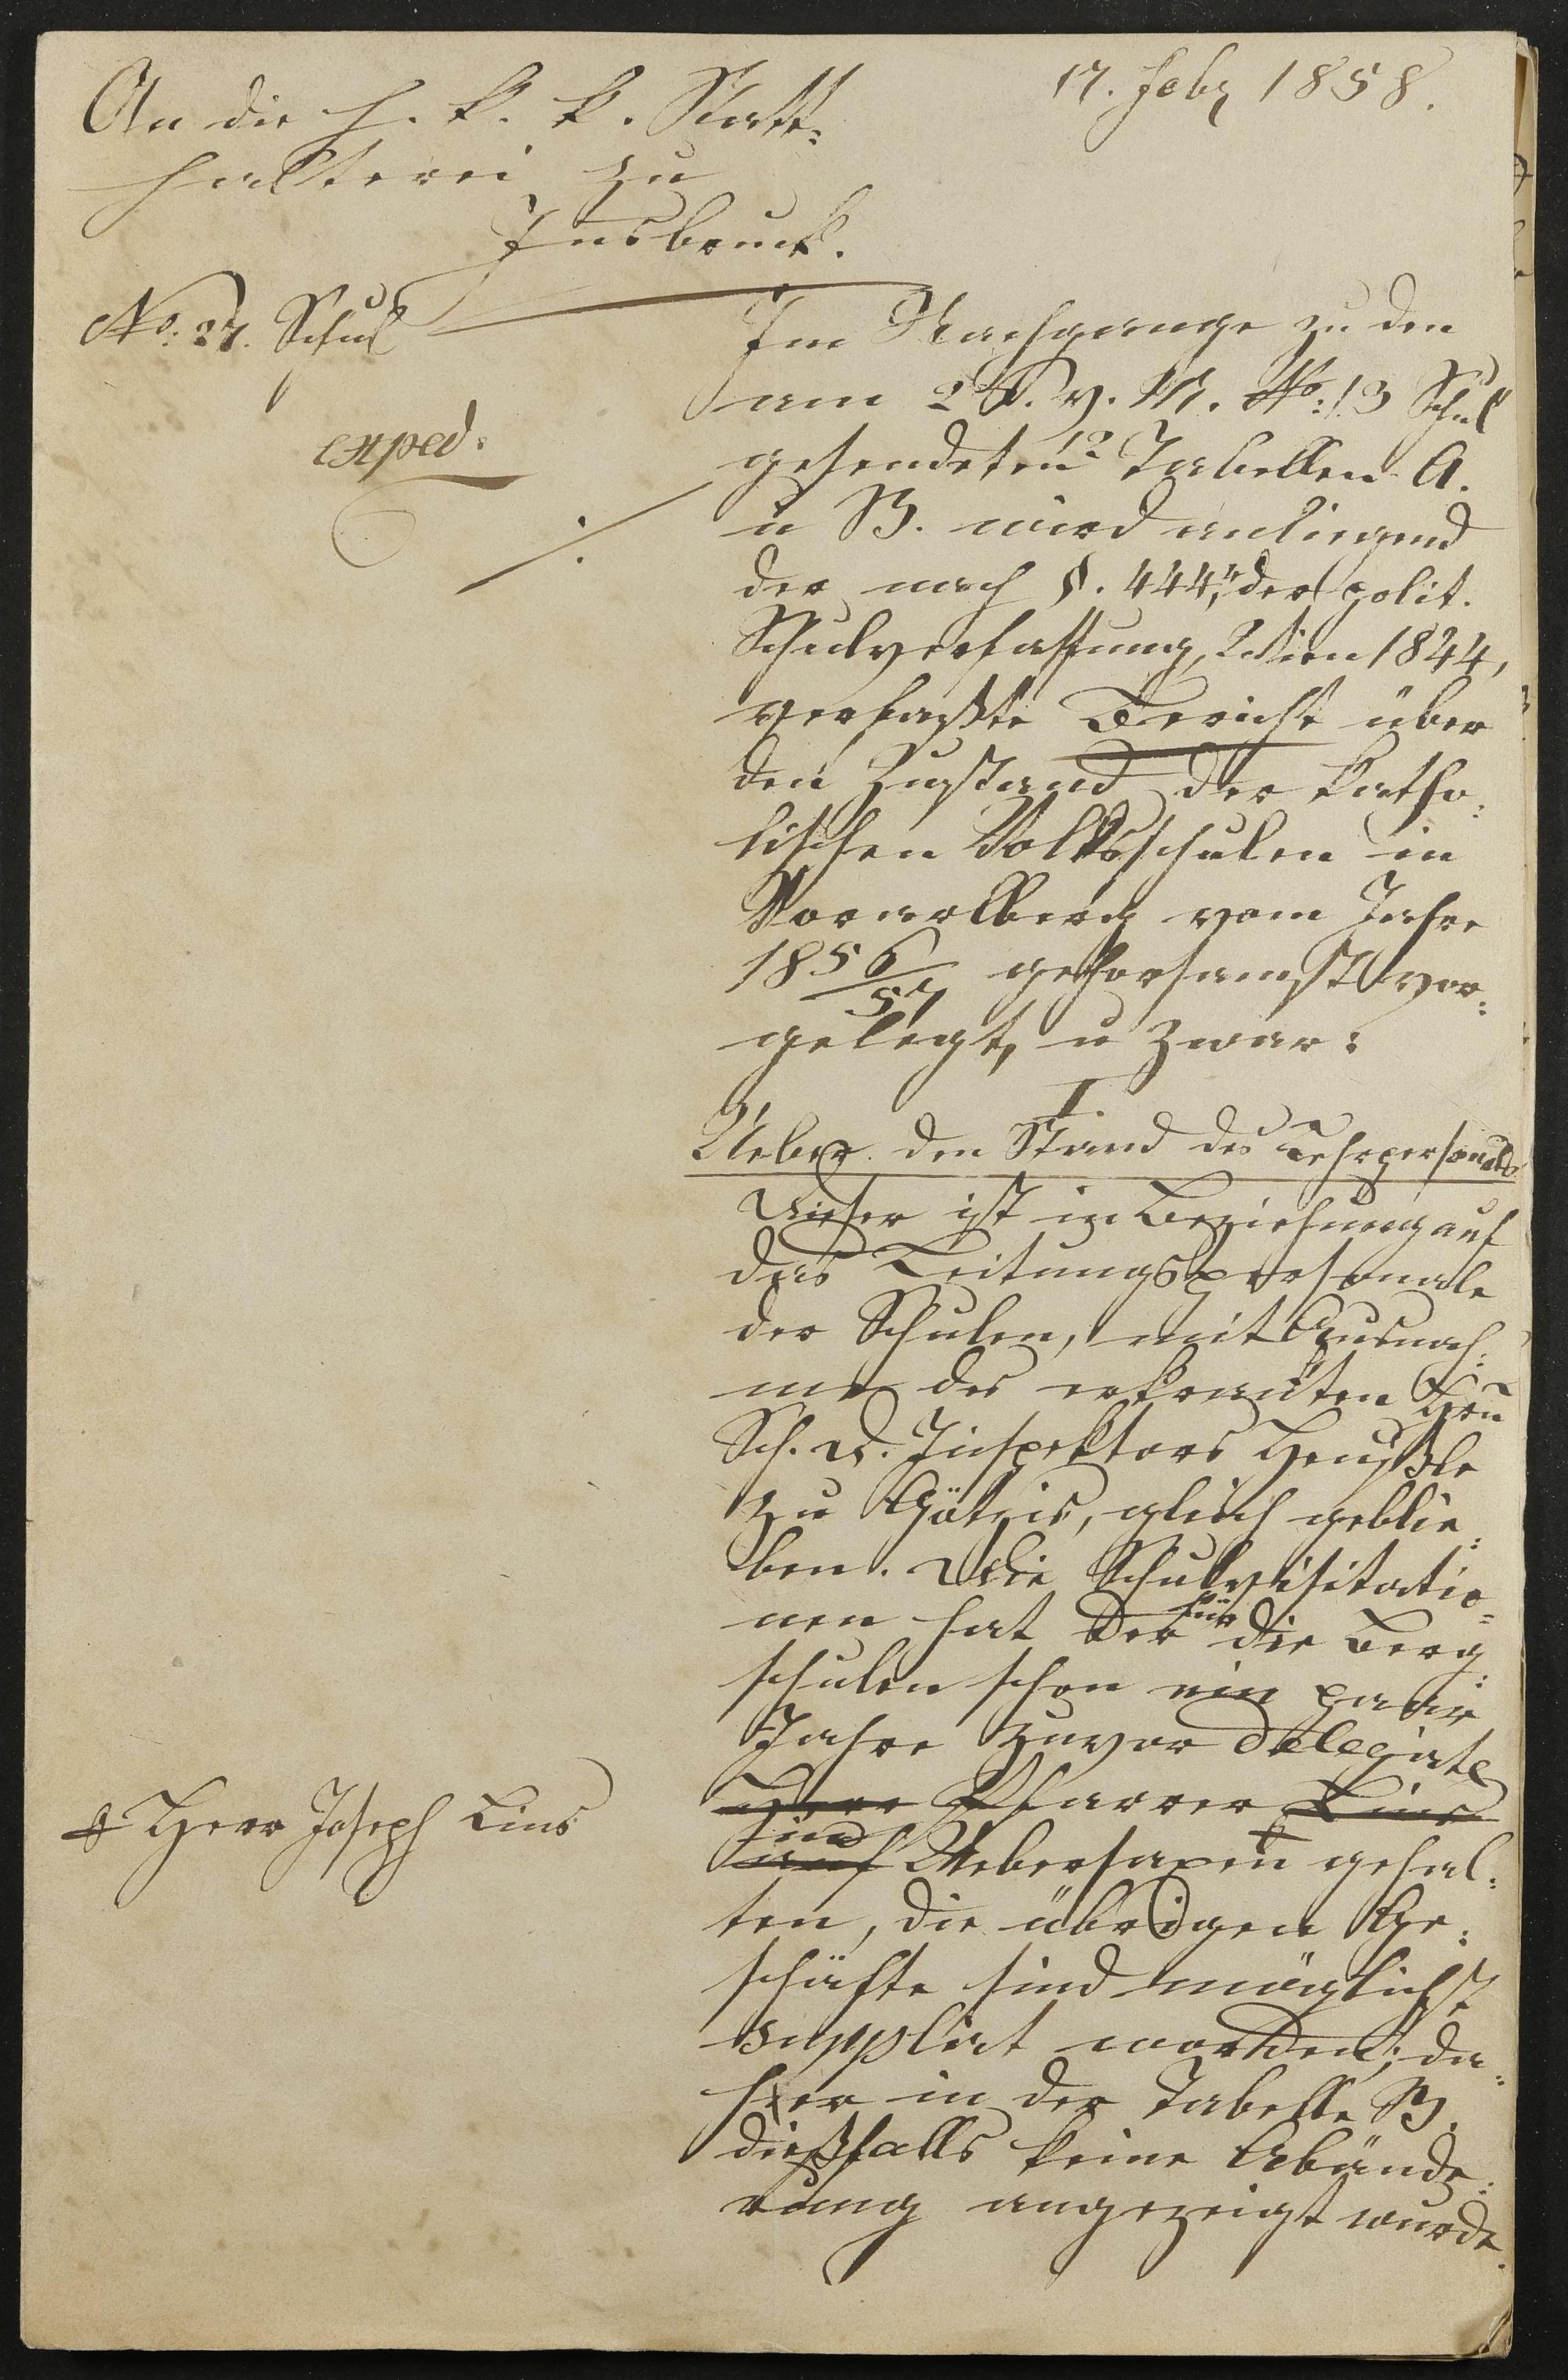 17. Febr 1858.
An die h. k. k. Statt:
halterei zu
Insbruck.
No. 27. Schul
exped.
Im Nachgange zu den
am 28. v. M. No: 13 Schul
gesendeten 12 Tabellen A.
u B. wird anliegend
der nach §. 444, der polit.
Schulverfassung, Wien 1844,
verfaßte Bericht über
den Zustand der katho:
lischen Volksschulen in
Vorarlberg vom Jahre
1856/57 gehorsamst vor:
gelegt, u zwar:
I.
Ueber den Stand des Lehrpersonals
Dieser ist in Beziehung auf
das Leitungspersonale
der Schulen, mit Ausnah:
me des erkrankten Hrn
Sch. D. Inspektors Heußle
zu Götzis, gleich geblie:
ben. Die Schulvisitatio:
nen hat der für die Berg:
schulen schon ein paar
Jahre zuvor delegirte
Herr Pfarrer Lins
in
auf Uebersaxen gehal:
ten, die übrigen Ge:
schäfte sind möglichst
supplirt worden; da:
her in der Tabelle B.
dießfalls keine Abände:
rung angezeigt wurde.
Herr Joseph Lins